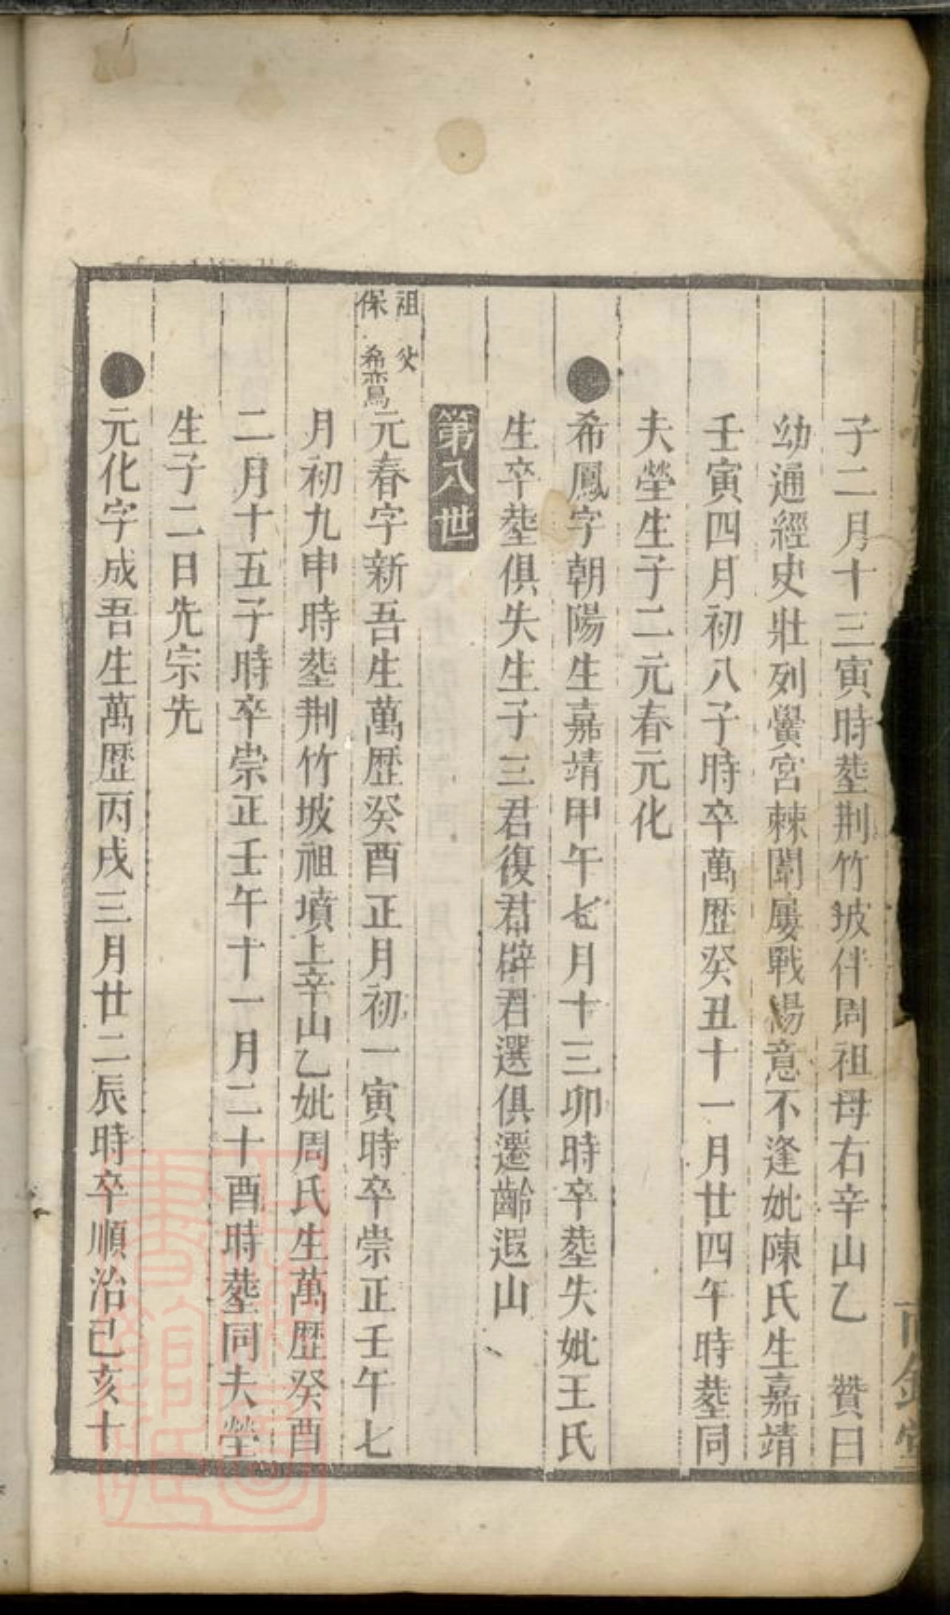 子二月十三寅時塟荆竹坡伴周祖母右辛山乙 贊曰
幼通經史壯列黌宮棘闈屢戰揚意不逢妣陳氏生嘉靖
壬寅四月初八子時卒萬歷癸丑十一月廿四午時塟同
夫塋生子二元春元化
希鳳字朝陽生嘉靖甲午七月十三卯時卒塟失妣王氏
生卒塟俱失生子三君復君辟君選俱遷齡遐山
第八世
祖父
保希鸞
元春字新吾生萬歷癸酉正月初一寅時卒崇正壬午七
月初九申時塟荆竹坡祖墳上辛山乙妣周氏生萬歷癸酉
二月十五子時卒崇正壬午十一月二十酉時塟同夫塋
生子二日先宗先
元化字成吾生萬歷丙戌三月廿二辰時卒順治己亥十